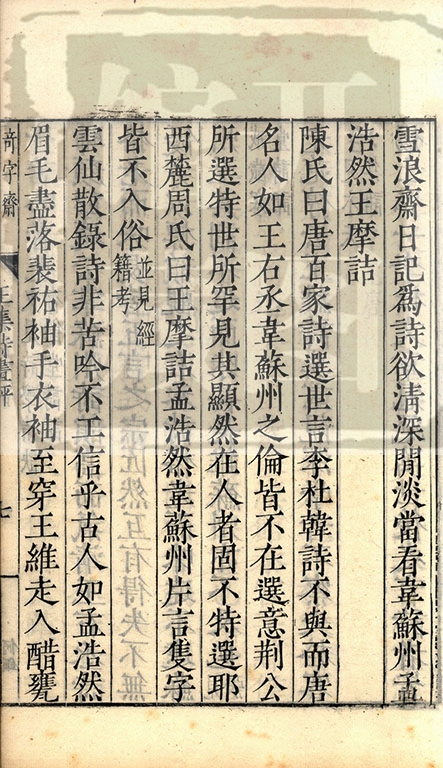 雪浪齋日記為詩欲清深閒淡當看韋蘇州孟
浩然王摩詰
陳氏曰唐百家詩選世言李杜韓詩不與而唐
名人如王右丞韋蘇州之倫皆不在選意荆公
所選特世所罕見其顯然在人者固不特選耶
西麓周氏曰王摩詰孟浩然韋蘇州片言隻字
皆不入俗並見經籍考
雲仙散錄詩非苦吟不工信乎古人如孟浩然
眉毛盡落裴祐袖手衣袖至穿王維走入醋甕
奇字齋
王集詩畫評
七